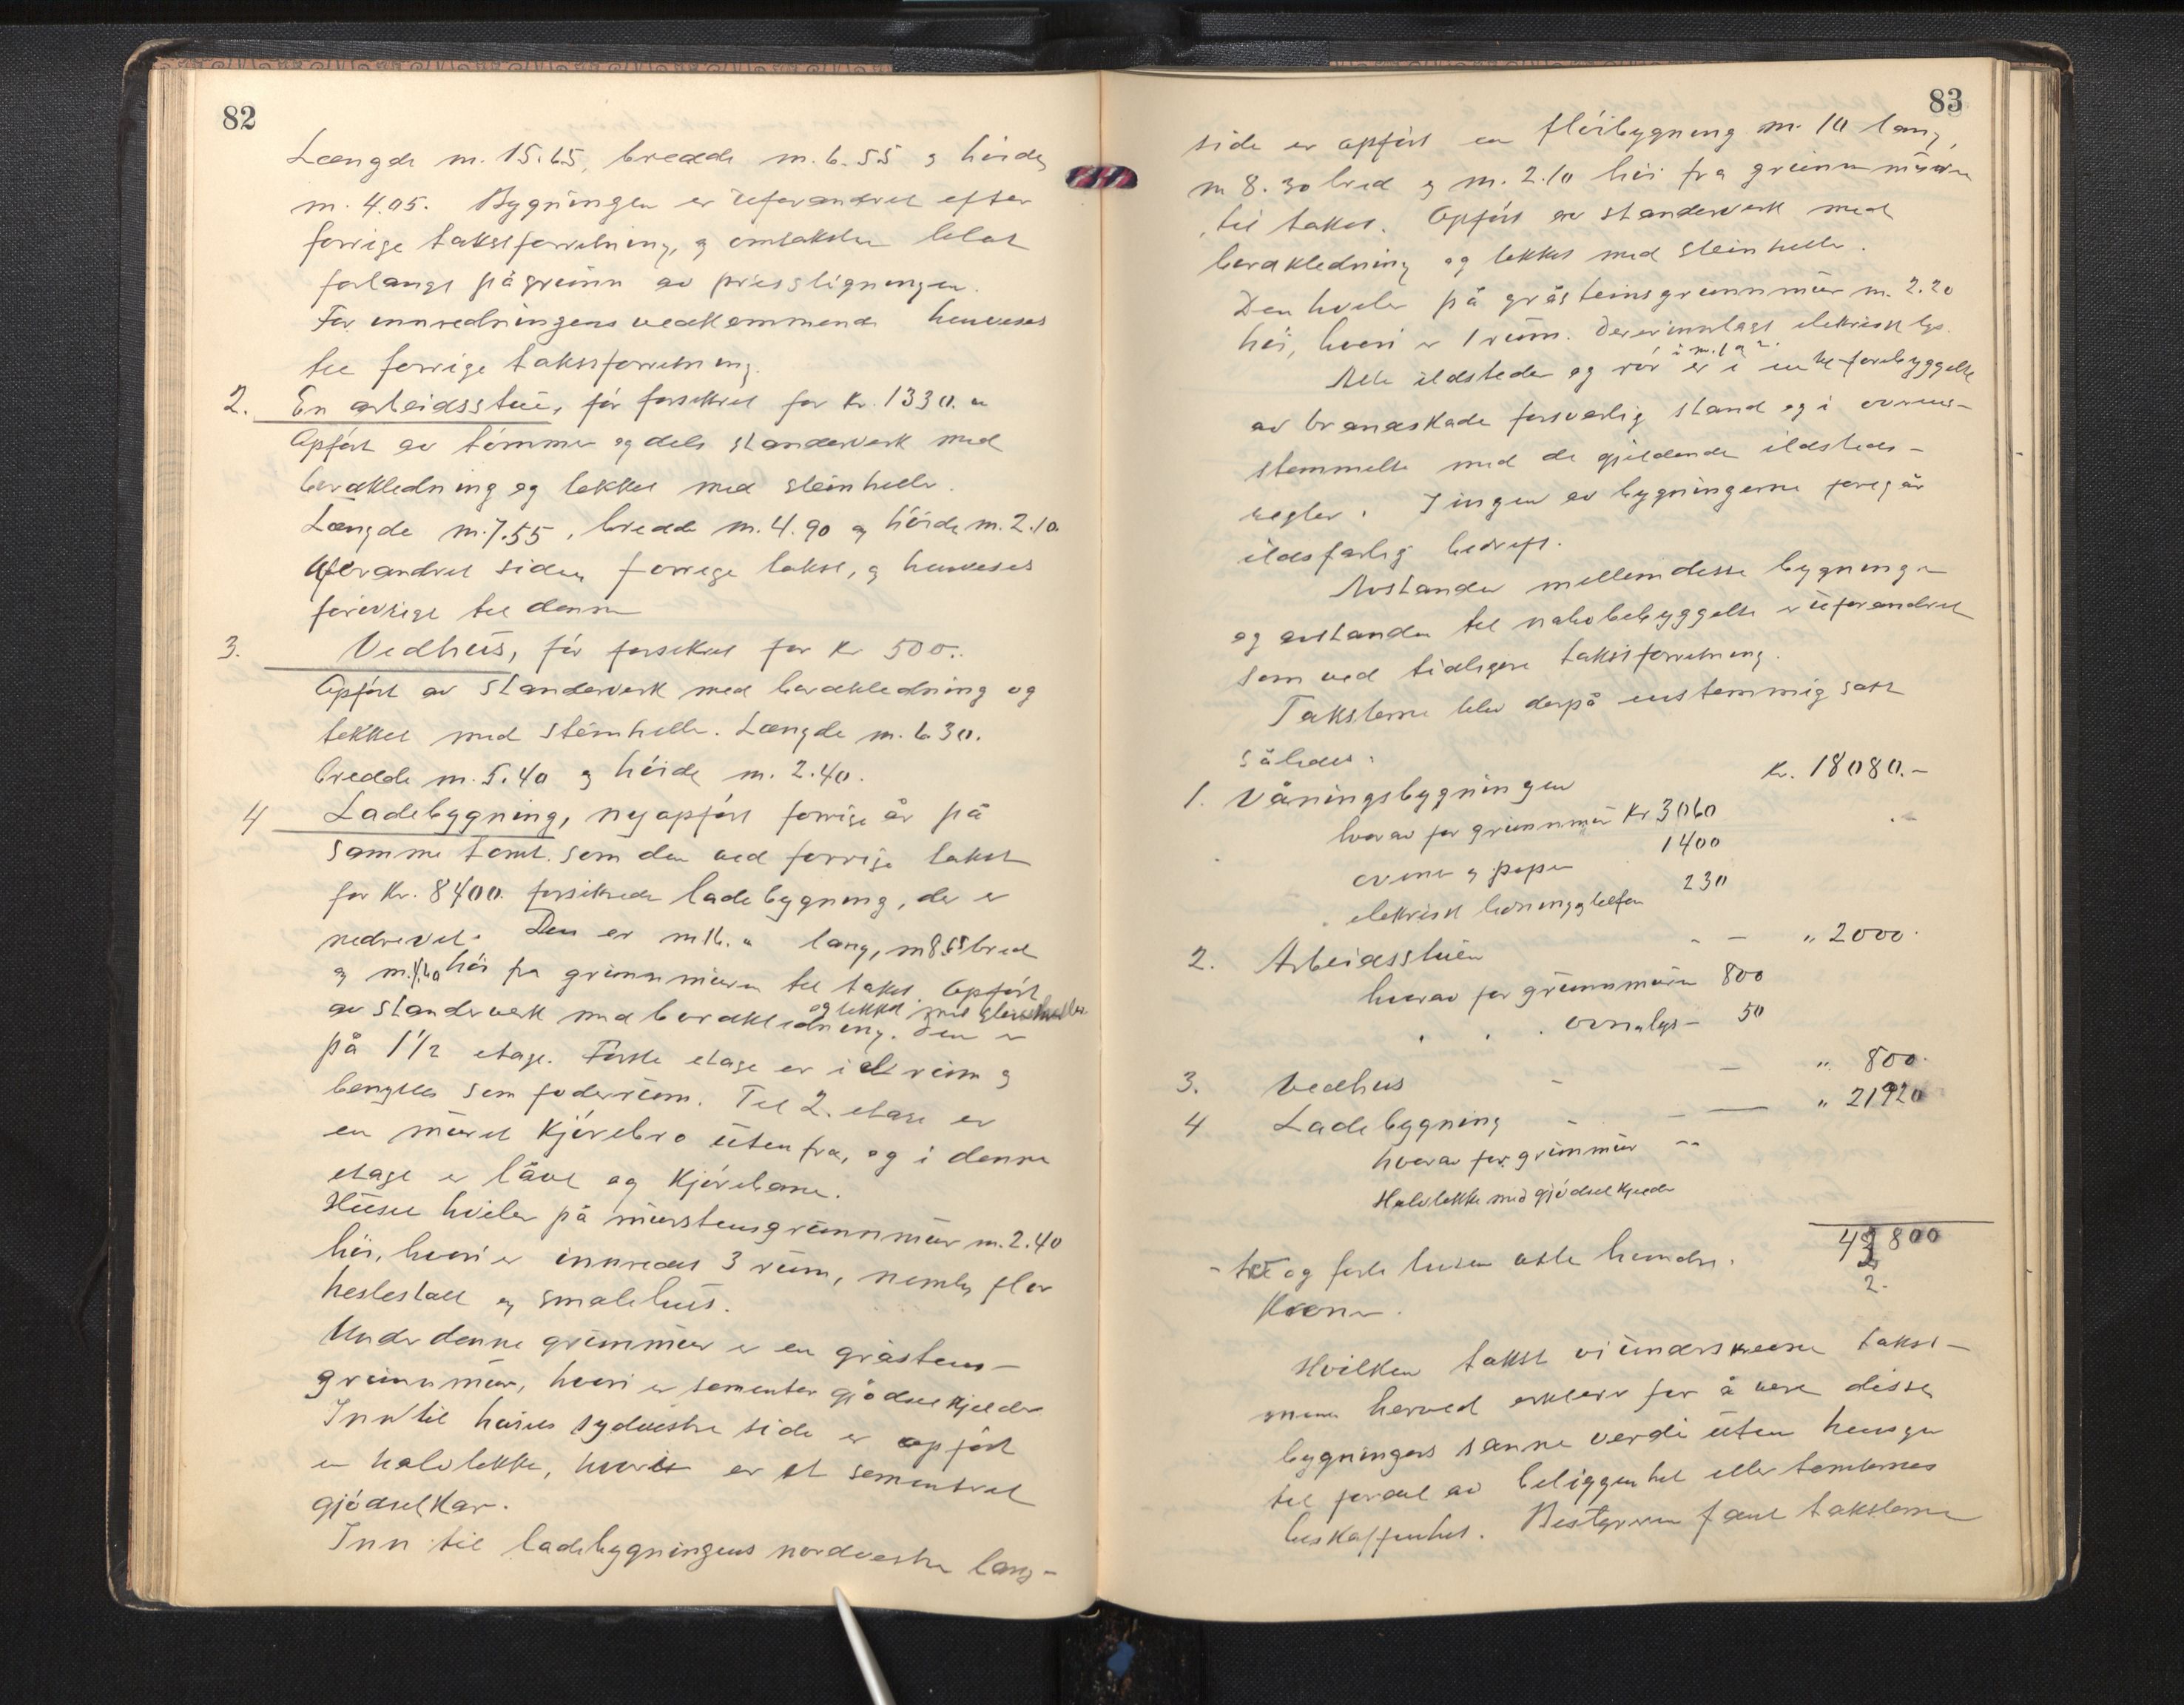 82
Længde m. 15.65, bredde m. 6.55 og höide
m. 4.05. Bygningen er uforandret efter
forrige takstforretning, og omtaksten blot
forlangt pågrunn av prisstigningen.
For innredningens vedkommende henvises
til forrige takstforretning.
2. En arbeidsstue, för forsikret for Kr. 1330.
Opfört av tömmer og dels standerverk med
bordkledning og tekket med steinheller.
Længde m. 7.55, bredde m. 4.90 og höide m. 2.10.
Uforandret siden forrige takst, og henvises
forövrigt til denne
3. Vedhus, för forsikret for Kr 500.
Opfört av standerverk med bordkledning og
tekket med steinheller. Længde m. 6.30.
bredde m. 5.40 og höide m. 2.40.
4 Ladebygning, nyopfört forrige år på
samme tomt som den ved forrige takst
for Kr. 8400. forsikrede ladebygning, der er
nedrevet. Den er m 16. lang, m 8.65 bred
og höi fra grunnmuren til taket. Opfört
av standerverk med bordkledning. Den er
og tekket med
på 1 1/2 etage. Förste etage er i et rum og
benyttes som foderrum. Til 2. etage er
en muret Kjörebro utenfra, og i denne
etage er låve og Kjörebane.
Huset hviler på murstensgrunnmur m. 2.40
höi, hvori er innredet 3 rum, nemlig flor
hestestall og smalehus.
Under denne grunnmur er en gråstens-
grunnmur, hvori er sementer gjödselkjelder
Inn til husets sydvestre side er opfört
en halvtekke, hvori er et sementret
gjödselkar.
Inn til ladebygningens nordvestre lang-
83
side er opfört en flöibygning m. 10 lang,
m 8.30 bred og m. 2.10 höi fra grunnmuren
til taket. Opfört av standerverk med
bordkledning og tekket med steinheller.
Den hviler på gråsteinsgrunnmur m. 2.20
höi, hvori er 1 rum. Der er innlagt elektrisk lys.
i nr. 1 og 2.
Alle ildsteder og rör er i en til forebyggelse
av brandskade forsvarlig stand og i overens-
stemmelse med de gjeldende ildsteds-
regler. I ingen av bygningerne foregår
ildsfarlig bedrift.
Avstanden mellem disse bygninger
og avstanden til nabobebyggelse er uforandret
som ved tidligere takstforretning.
Taksterne blev derpå enstemmig satt
således:
1. Våningsbygningen Kr. 18080.-
hvorav for grunnmur Kr 3060
ovner og piper 1400
elektrisk ledning og telefon 230
2. Arbeidsstuen - - " 2000.
hvorav for grunnmuren 800
" " " ovn og lys - 50
3. Vedhus - - " 800.
4 Ladebygning - - " 21920
hvorav for grunnmur "
Halvtekke med gjödselkjelder
42800
2.
- to og förti tusen otte hundre.
Kroner.
Hvilken takst vi underskrevne takst-
menn herved erklærer for å være disse
bygningers sanne verdi uten hensyn
til fordel av beliggenhet eller tomternes
beskaffenhet. Bestyreren fant taksterne